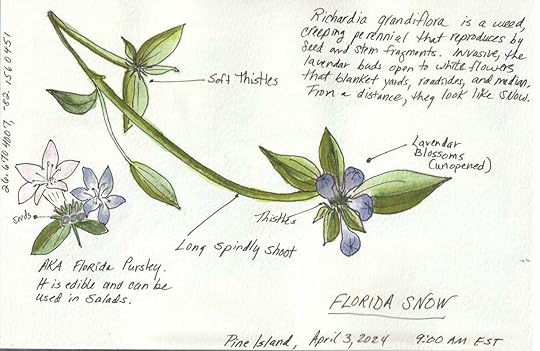 Richardia grandiflora is a weed,
creeping perennial that reproduces by
seed and stem fragments. Invasive, the
lavendar buds open to white flowers
that blanket yards, roadsides, and median.
From a distance, they look like snow.
Soft Thistles
Lavendar
Blossoms
(unopened)
26.6764007, -82.1560451
Seeds
Thistles
Long Spindly Shoot
AKA Florida Pursley.
It is edible and can be
used in Salads.
FLORIDA SNOW
Pine Island, April 3, 2024 9:00 AM EST